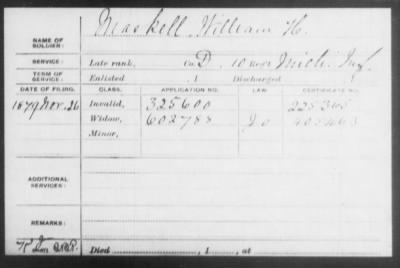 Maskell, William H.
NAME OF SOLDIER:
SERVICE: Late rank, Co. D, 10 Mich. Inf.
TERM OF SERVICE: Enlisted , 1 Discharged , 1
DATE OF FILING. CLASS. APPLICATION NO. LAW. CERTIFICATE NO.
1879 Nov. 26 Invalid, 325600
Widow, 602788
Minor,
ADDITIONAL SERVICES:
REMARKS:
Died , 1 , at